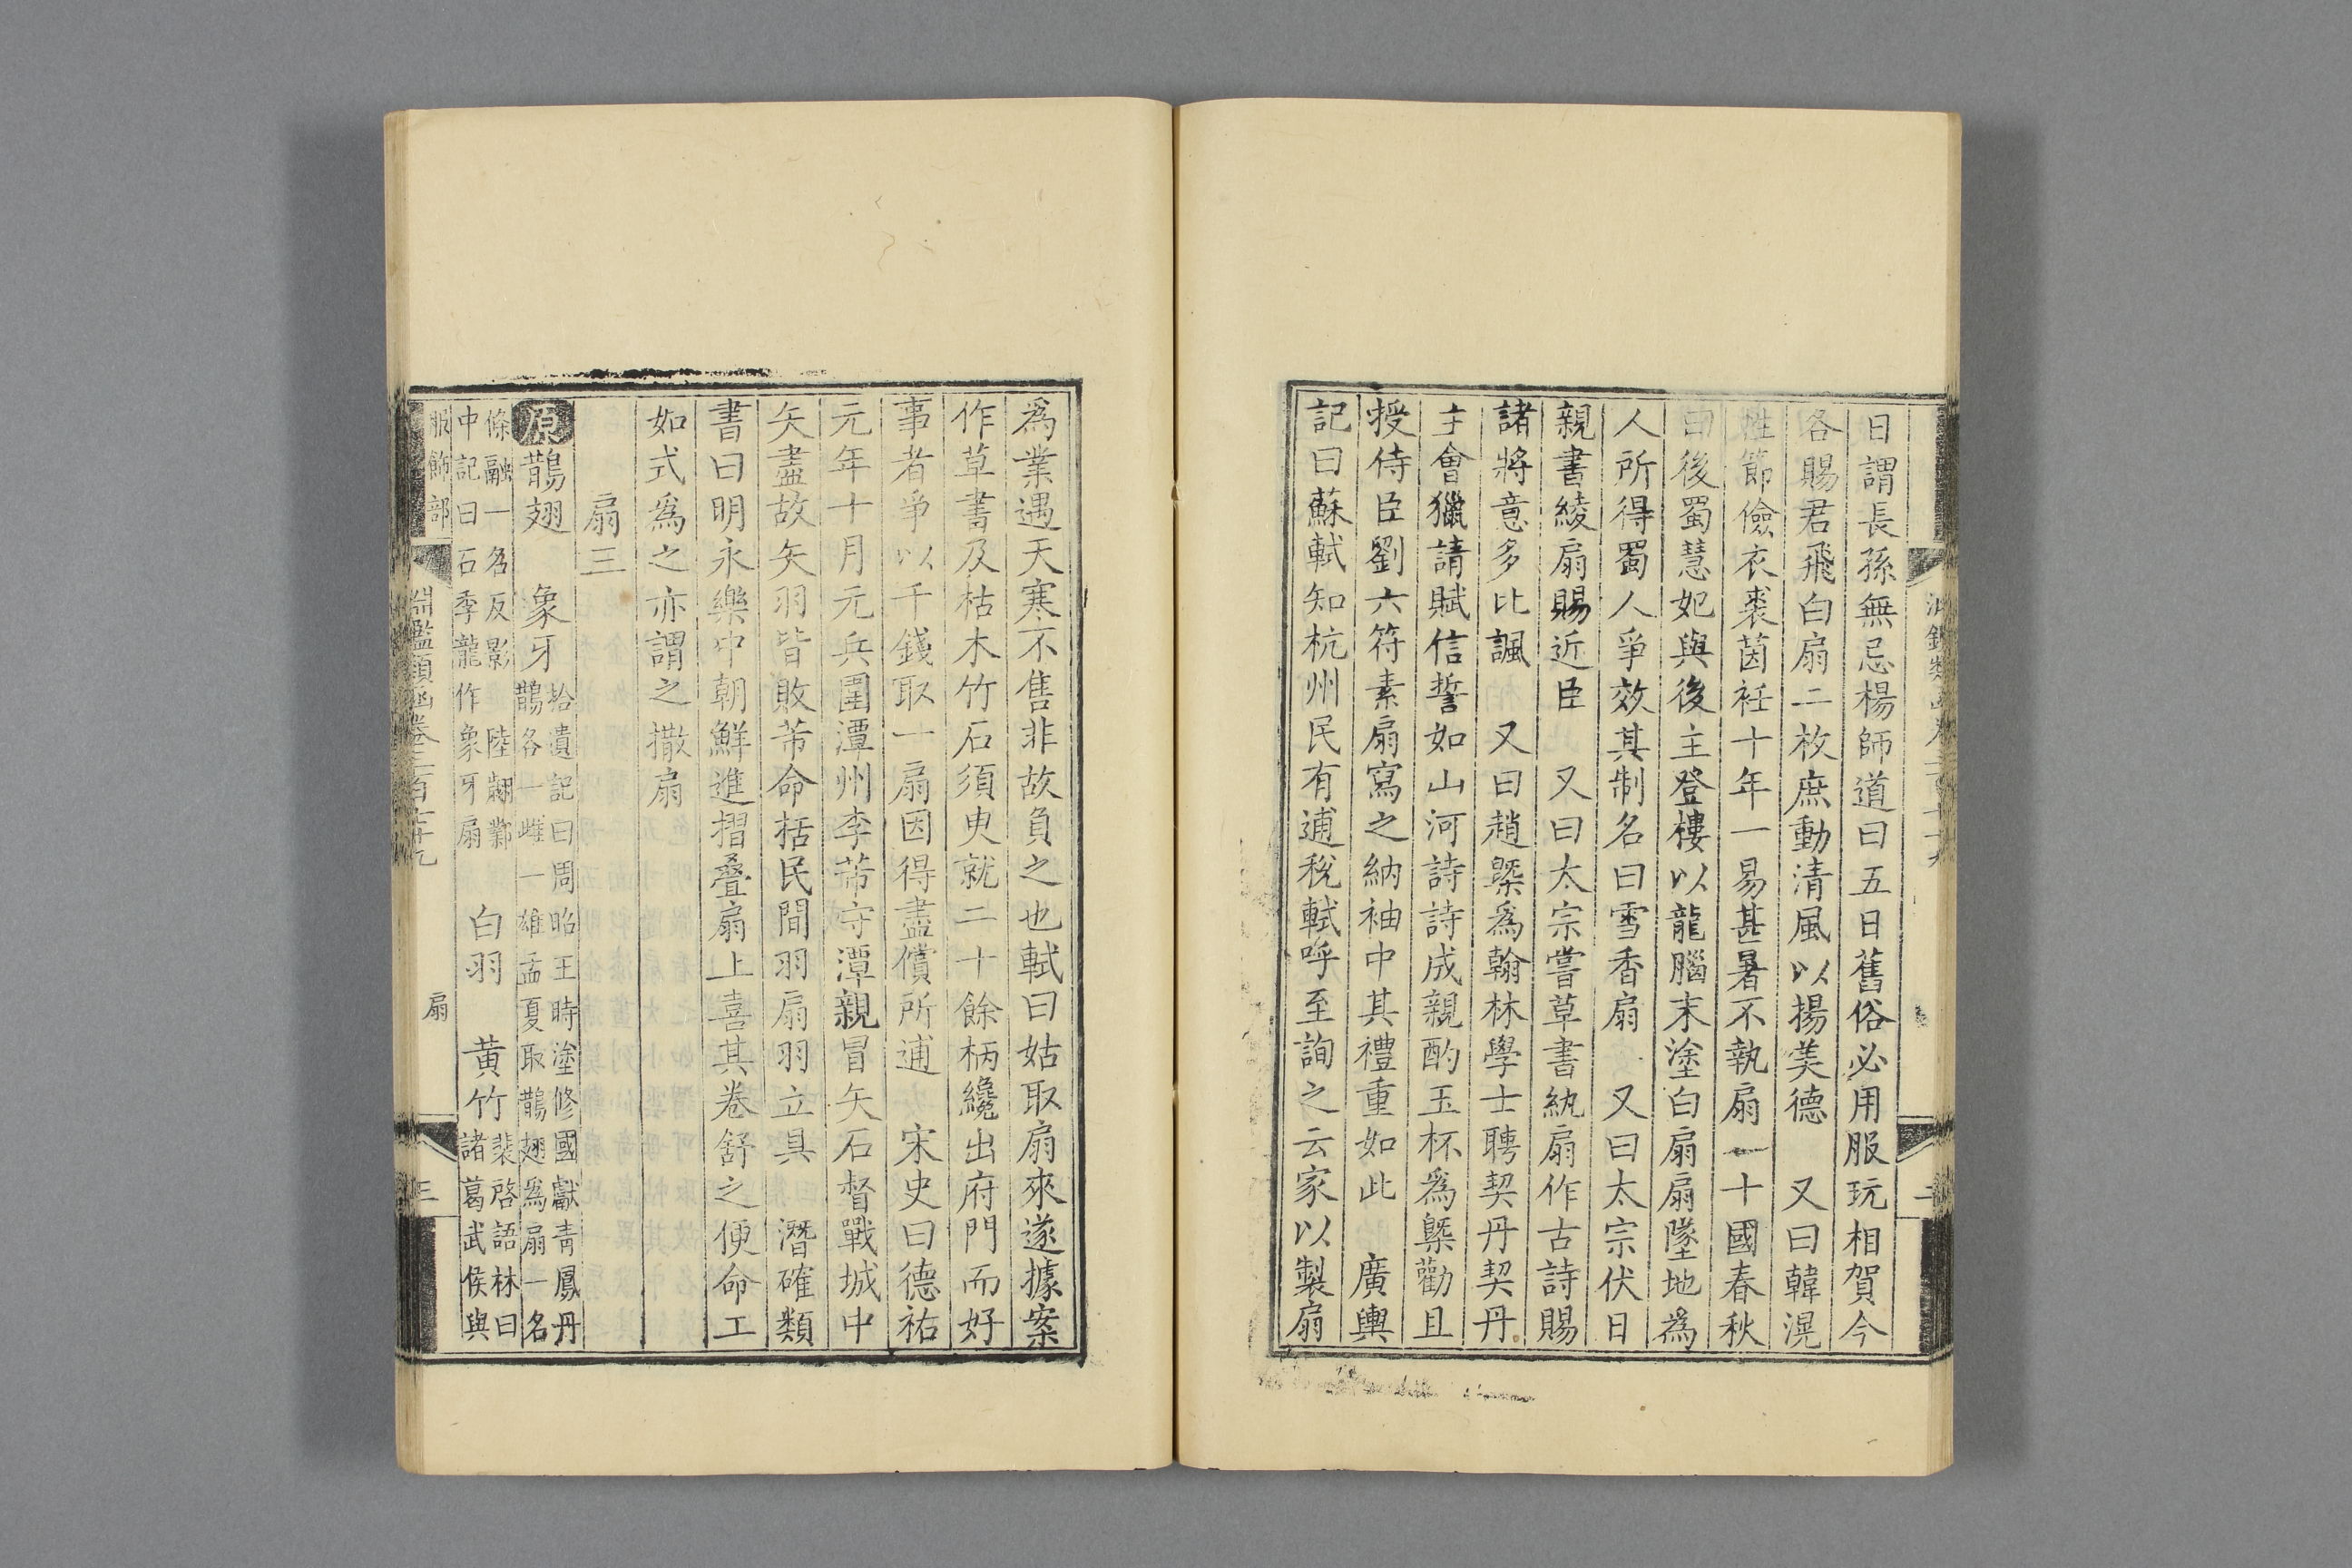 日謂長孫無忌楊師道曰五日舊俗必用服玩相賀今
各賜君飛白扇二枚庶動清風以揚美德 又曰韓滉
性節儉衣裘茵衽十年一易甚暑不執扇 十國春秋
曰後蜀慧妃與後主登樓以龍腦末塗白扇扇墜地爲
人所得蜀人爭效其制名曰雪香扇 又曰太宗伏日
親書綾扇賜近臣 又曰太宗嘗草書紈扇作古詩賜
諸將意多比諷 又曰趙槩爲翰林學士聘契丹契丹
主會獵請賦信誓如山河詩詩成親酌玉杯爲槩勸且
授侍臣劉六符素扇寫之納袖中其禮重如此 廣輿
記曰蘇軾知杭州民有逋稅軾呼至詢之云家以製扇
爲業遇天寒不售非故負之也軾曰姑取扇來遂據案
作草書及枯木竹石須臾就二十餘柄纔出府門而好
事者爭以千錢取一扇因得盡償所逋 宋史曰德祐
元年十月元兵圍潭州李芾守潭親冒矢石督戰城中
矢盡故矢羽皆敗芾命括民間羽扇羽立具 潛確類
書曰明永樂中朝鮮進摺疊扇上喜其卷舒之便命工
如式爲之亦謂之撒扇
扇三
原鵲翅 象牙 拾遺記曰周昭王時塗修國獻青鳳丹
鵲各一雌一雄孟夏取鵲翅爲扇一名
條融一名反影 陸翽鄴
中記曰石季龍作象牙扇 白羽 黄竹 裴啓語林曰
諸葛武侯與
服飾部
淵鑑類函卷三百七十九
扇
三